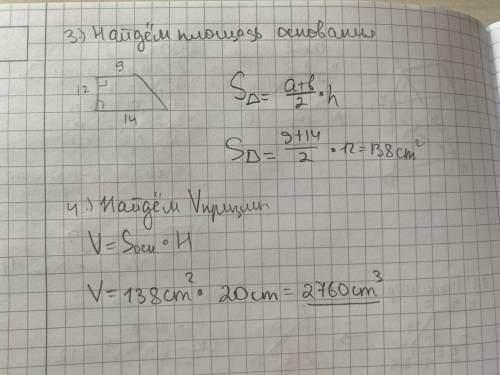 3.) Найдём площадь основания
9
12
14
S⊿ = (a+b)/2 · h
S⊿ = (9+14)/2 · 12 = 138cm²
4.) Найдём Vпризмы
V = Sосн · H
V = 138cm² · 20cm = 2760cm³